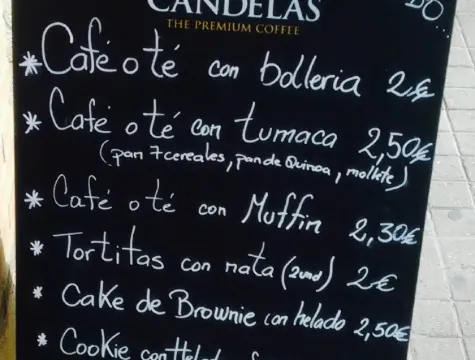 CANDELAS
THE PREMIUM COFFEE
* Café o té con bolleria 2€
* Café o té con tumaca 2,50€
(pan 7 cereales, pan de Quinoa, mollete)
* Café o té con Muffin 2,30€
* Tortitas con nata (2und) 2€
* Cake de Brownie con helado 2,50€
* Cookie con